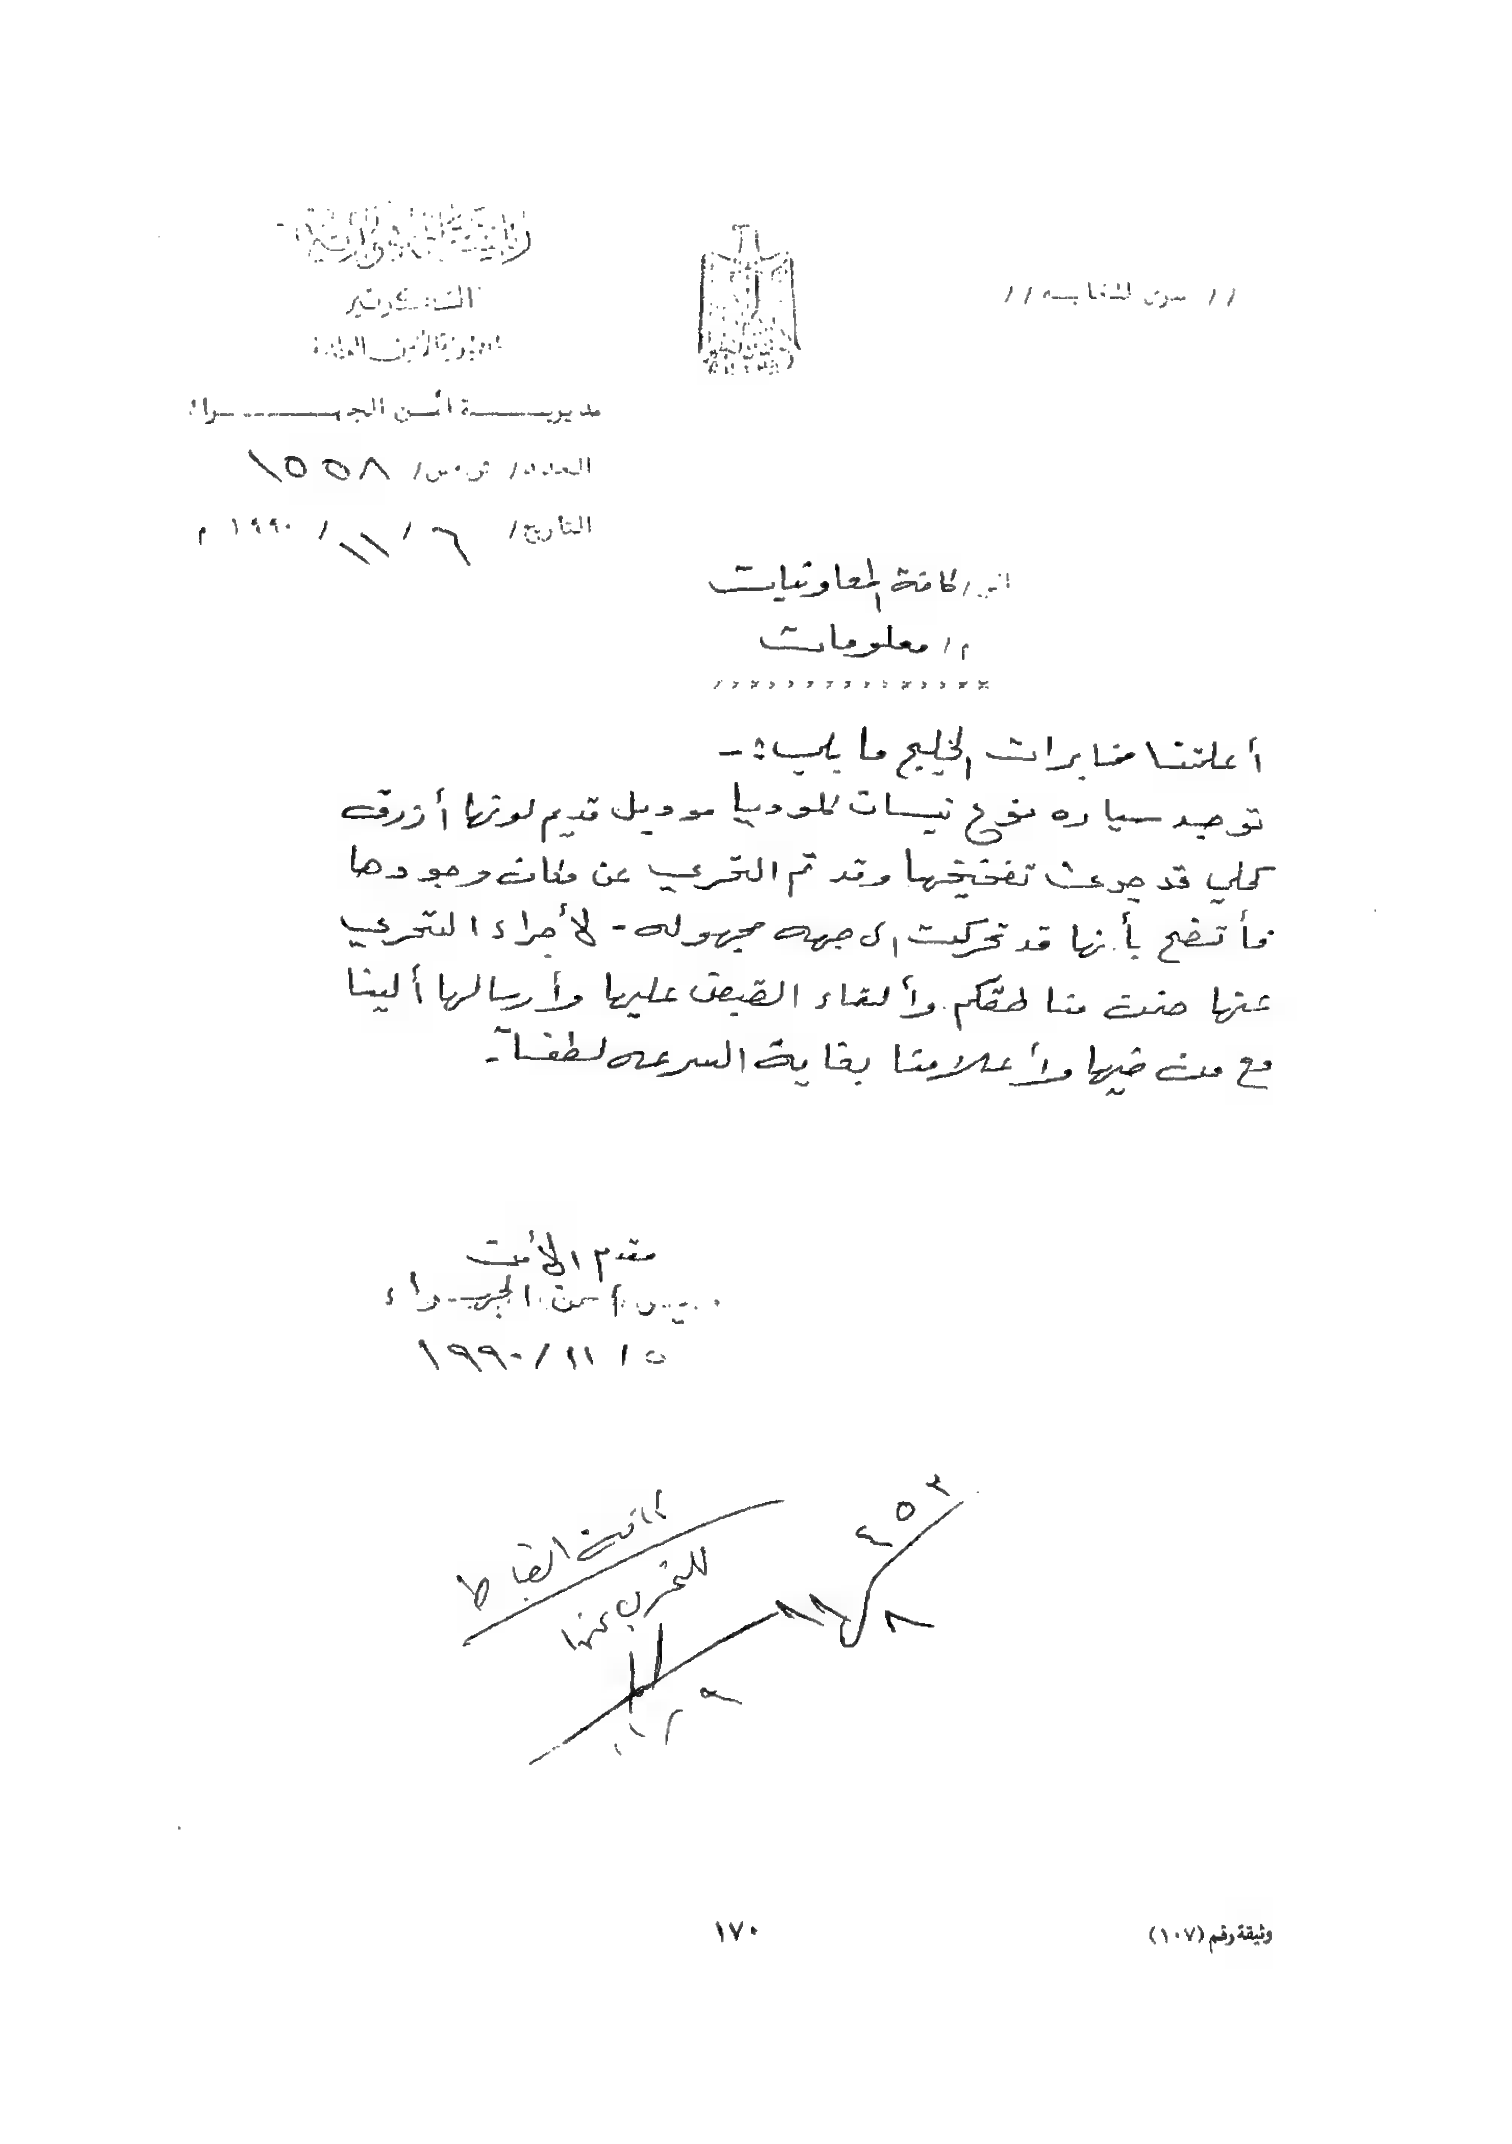 // سري للغاية //
رئاسة الجمهورية
السكرتير
مديرية الأمن العامة
مديرية أمن الجهراء
العدد / ١٥٥٨
التأريخ / ٦ / ١١ / ١٩٩٠ م
الى / كافة المعاونيات
م / معلومات
أعلمتنا مخابرات الخليج ما يلي :-
توجد سياره نوع نيسان كلوديا موديل قديم لونها أزرق
كحلي قد جرت تفخيخها وقد تم التحري عن مكان وجودها
فأتضح بأنها قد تحركت الى جهه مجهوله - لأجراء التحري
عنها ضمن مناطقكم وألقاء القبض عليها وأرسالها ألينا
مع من فيها وأعلامنا بغاية السرعه لطفاً -
مقدم الأمن
أمن الجهراء
٥ / ١١ / ١٩٩٠
كافة الضباط
للتحري عنها
٨
وثيقة رقم (١٠٧)
١٧٠